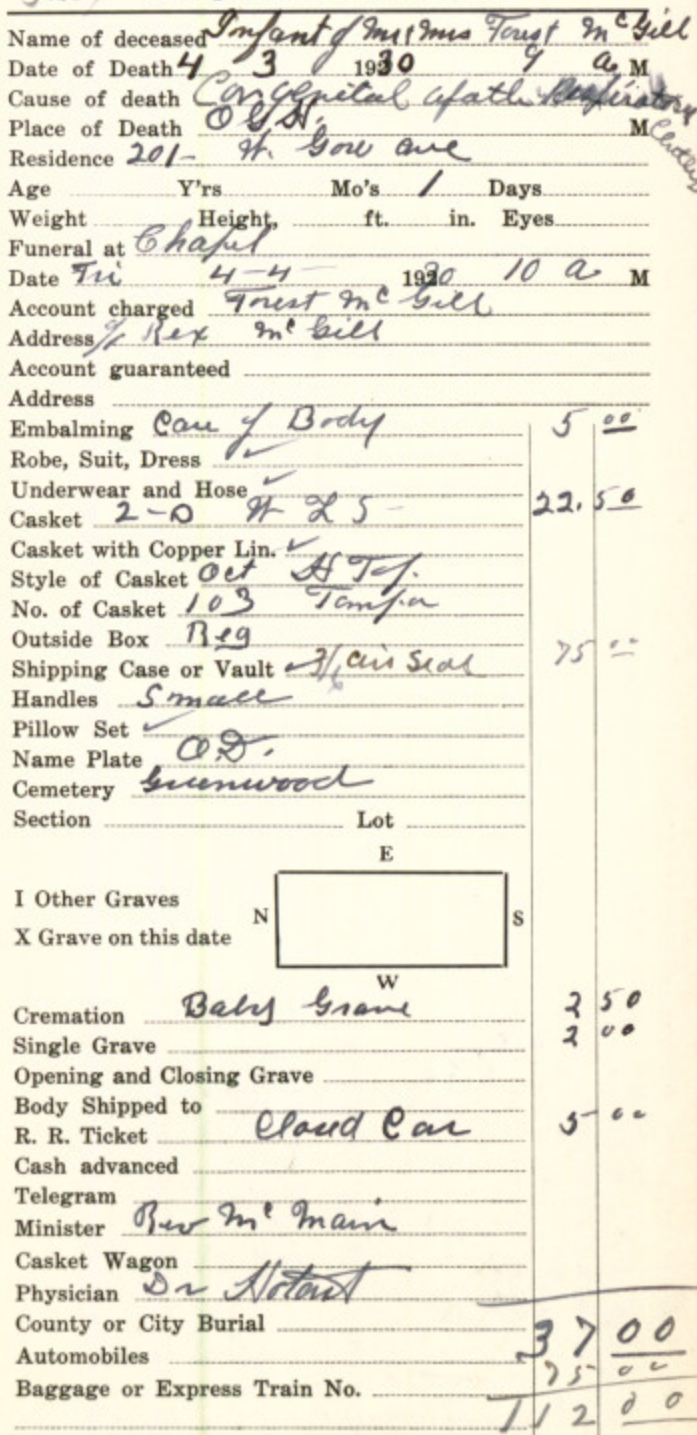 Name of deceased Infant of Mr & Mrs Forest McGill
Date of Death 4 3 1930 9 a M
Cause of death Congenital Respiratory
Place of Death O G H. M
Residence 201- W. Gore ave
Age Y'rs Mo's 1 Days
Weight Height, ft. in. Eyes
Funeral at Chapel
Date Fri 4-4- 1930 10 a M
Account charged Forest McGill
Address c/o Rex McGill
Account guaranteed
Address
Embalming Care of Body 5 00
Robe, Suit, Dress ✓
Underwear and Hose ✓
Casket 2-0 W 25 22.50
Casket with Copper Lin. ✓
Style of Casket Oct
No. of Casket 103 Tampa
Outside Box Reg
Shipping Case or Vault air Seal 75 00
Handles Small
Pillow Set ✓
Name Plate O.D.
Cemetery Greenwood
Section Lot
E
I Other Graves
N S
X Grave on this date
W
Cremation Baby Grave 2 50
Single Grave 2 00
Opening and Closing Grave
Body Shipped to
R. R. Ticket Closed Car 5 00
Cash advanced
Telegram
Minister Rev McMain
Casket Wagon
Physician Dr
County or City Burial 37 00
Automobiles 75 00
Baggage or Express Train No. 112 00